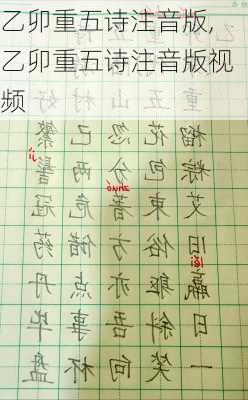 乙卯重五诗注音版,
乙卯重五诗注音版视
频
重五山村好
榴花忽已繁
粽包分两髻
jì
艾束著危冠
zhuo
旧俗方储药
léi
羸躯亦点丹
日斜吾事毕
一笑向杯盘